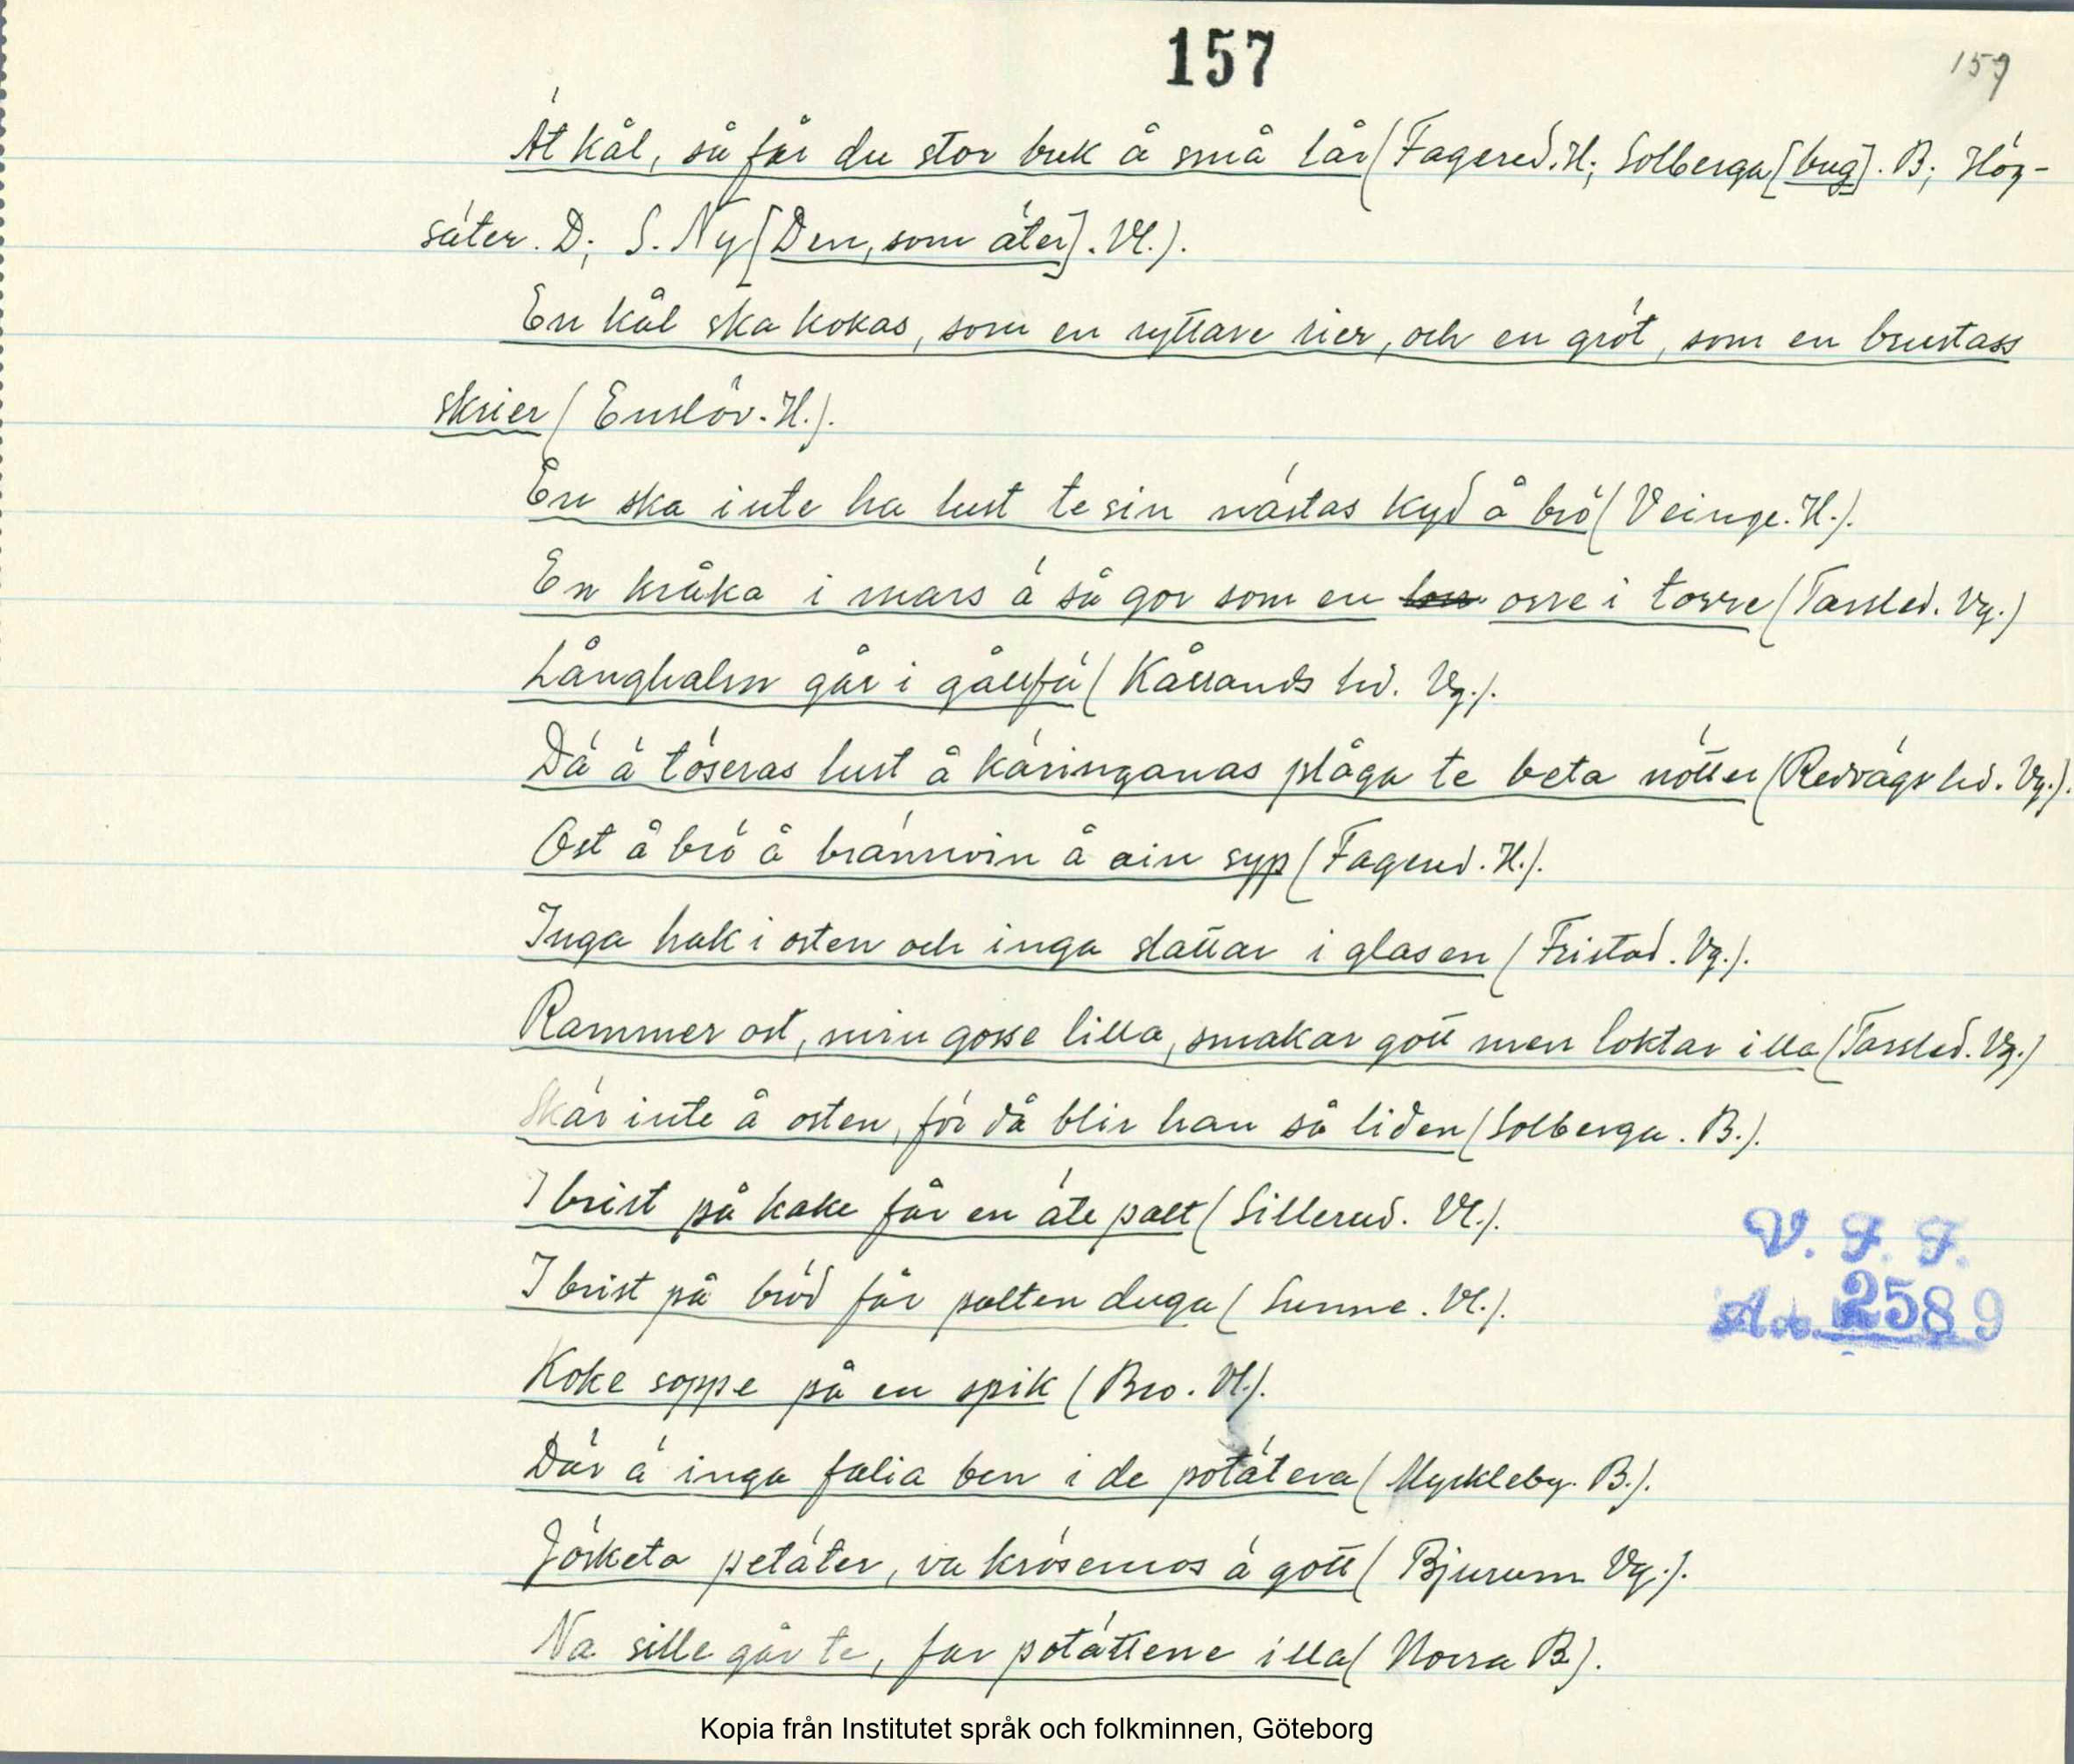 157
159
Ät kål, så får du stor buk å små lår (Fagered. H; Solberga [bug]. B; Hög-
säter. D; S. Ny [Den, som äter]. Vl.).
En kål ska kokas, som en ryttare rier, och en gröt, som en brustass
skrier (Enslöv. H.).
En ska inte ha lust te sin nästas kyd å brö (Veinge. H.).
En kråka i mars ä så gor som en orre i torre (Tarsled. Vg.)
Långhalm går i gållfä (Kållands hd. Vg.).
Dä ä töseras lust å käringanas plåga te beta nötter (Redvägs hd. Vg.).
Ost å brö å brännvin å ain syp (Fagered. H.).
Inga hak i osten och inga slattar i glasen (Fristad. Vg.).
Rammer ost, min gosse lilla, smakar gott men loktar illa (Tarsled. Vg.)
Skär inte å osten, för då blir han så liden (Solberga. B.).
I brist på kake får en äte palt (Sillerud. Vl.).
I brist på bröd får palten duga (Sunne. Vl.).
V. F. F.
Acc. 2589
Koke soppe på en spik (Bro. Vl.).
Där ä inga falia ben i de potätera (Myckleby. B.).
Jösketa petäter, va krösemos ä gott (Bjurum Vg.).
Na sille går te, far potättene illa (Norra B).
Kopia från Institutet språk och folkminnen, Göteborg